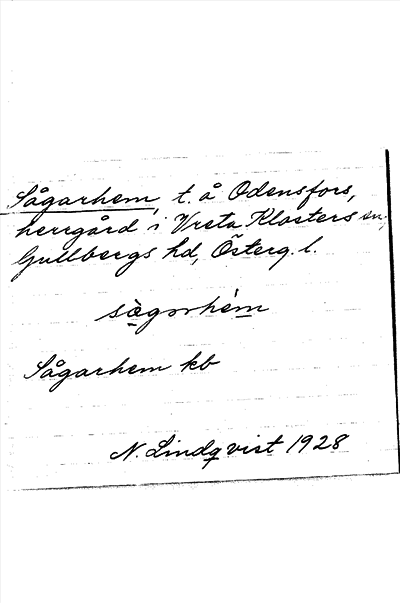 Sågarhem, t. å Odensfors,
herrgård i Vreta Klosters sn,
Gullbergs hd, Österg. l.
sågarhem
Sågarhem kb
N. Lindqvist 1928